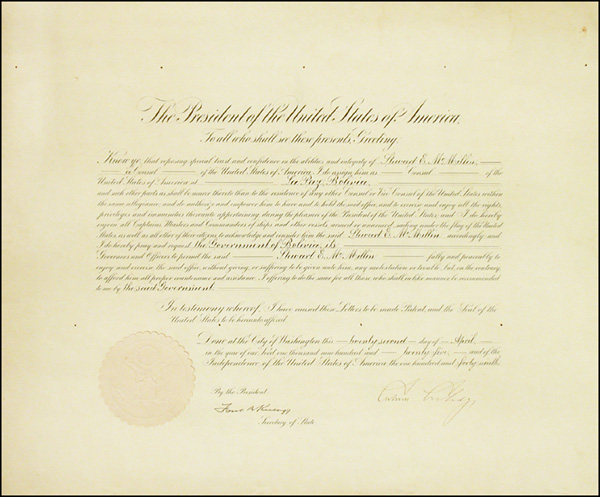 The President of the United States of America,
To all who shall see these presents, Greeting:
Know ye, that reposing special trust and confidence in the abilities and integrity of Stewart E. McMillin,
a Consul of the United States of America, I do assign him as Consul of the
United States of America at La Paz, Bolivia,
and such other parts as shall be nearer thereto than to the residence of any other Consul or Vice Consul of the United States within
the same allegiance; and do authorize and empower him to have and to hold the said office, and to exercise and enjoy all the rights,
privileges and immunities thereunto appertaining during the pleasure of the President of the United States; and I do hereby
enjoin all Captains, Masters and Commanders of ships and other vessels, armed or unarmed, sailing under the flag of the United
States, as well as all other of their citizens, to acknowledge and consider him the said Stewart E. McMillin accordingly; and
I do hereby pray and request the Government of Bolivia, its
Governors and Officers to permit the said Stewart E. McMillin fully and peaceably to
enjoy and exercise the said office, without giving, or suffering to be given unto him, any molestation or trouble; but, on the contrary,
to afford him all proper countenance and assistance; I offering to do the same for all those who shall, in like manner, be recommended
to me by the said Government.
In testimony whereof, I have caused these Letters to be made Patent, and the Seal of the
United States to be hereunto affixed.
Done at the City of Washington this twenty second day of April,
in the year of our Lord one thousand nine hundred and twenty five, and of the
Independence of the United States of America, the one hundred and forty ninth.
By the President:
Frank B. Kellogg
Secretary of State.
Calvin Coolidge